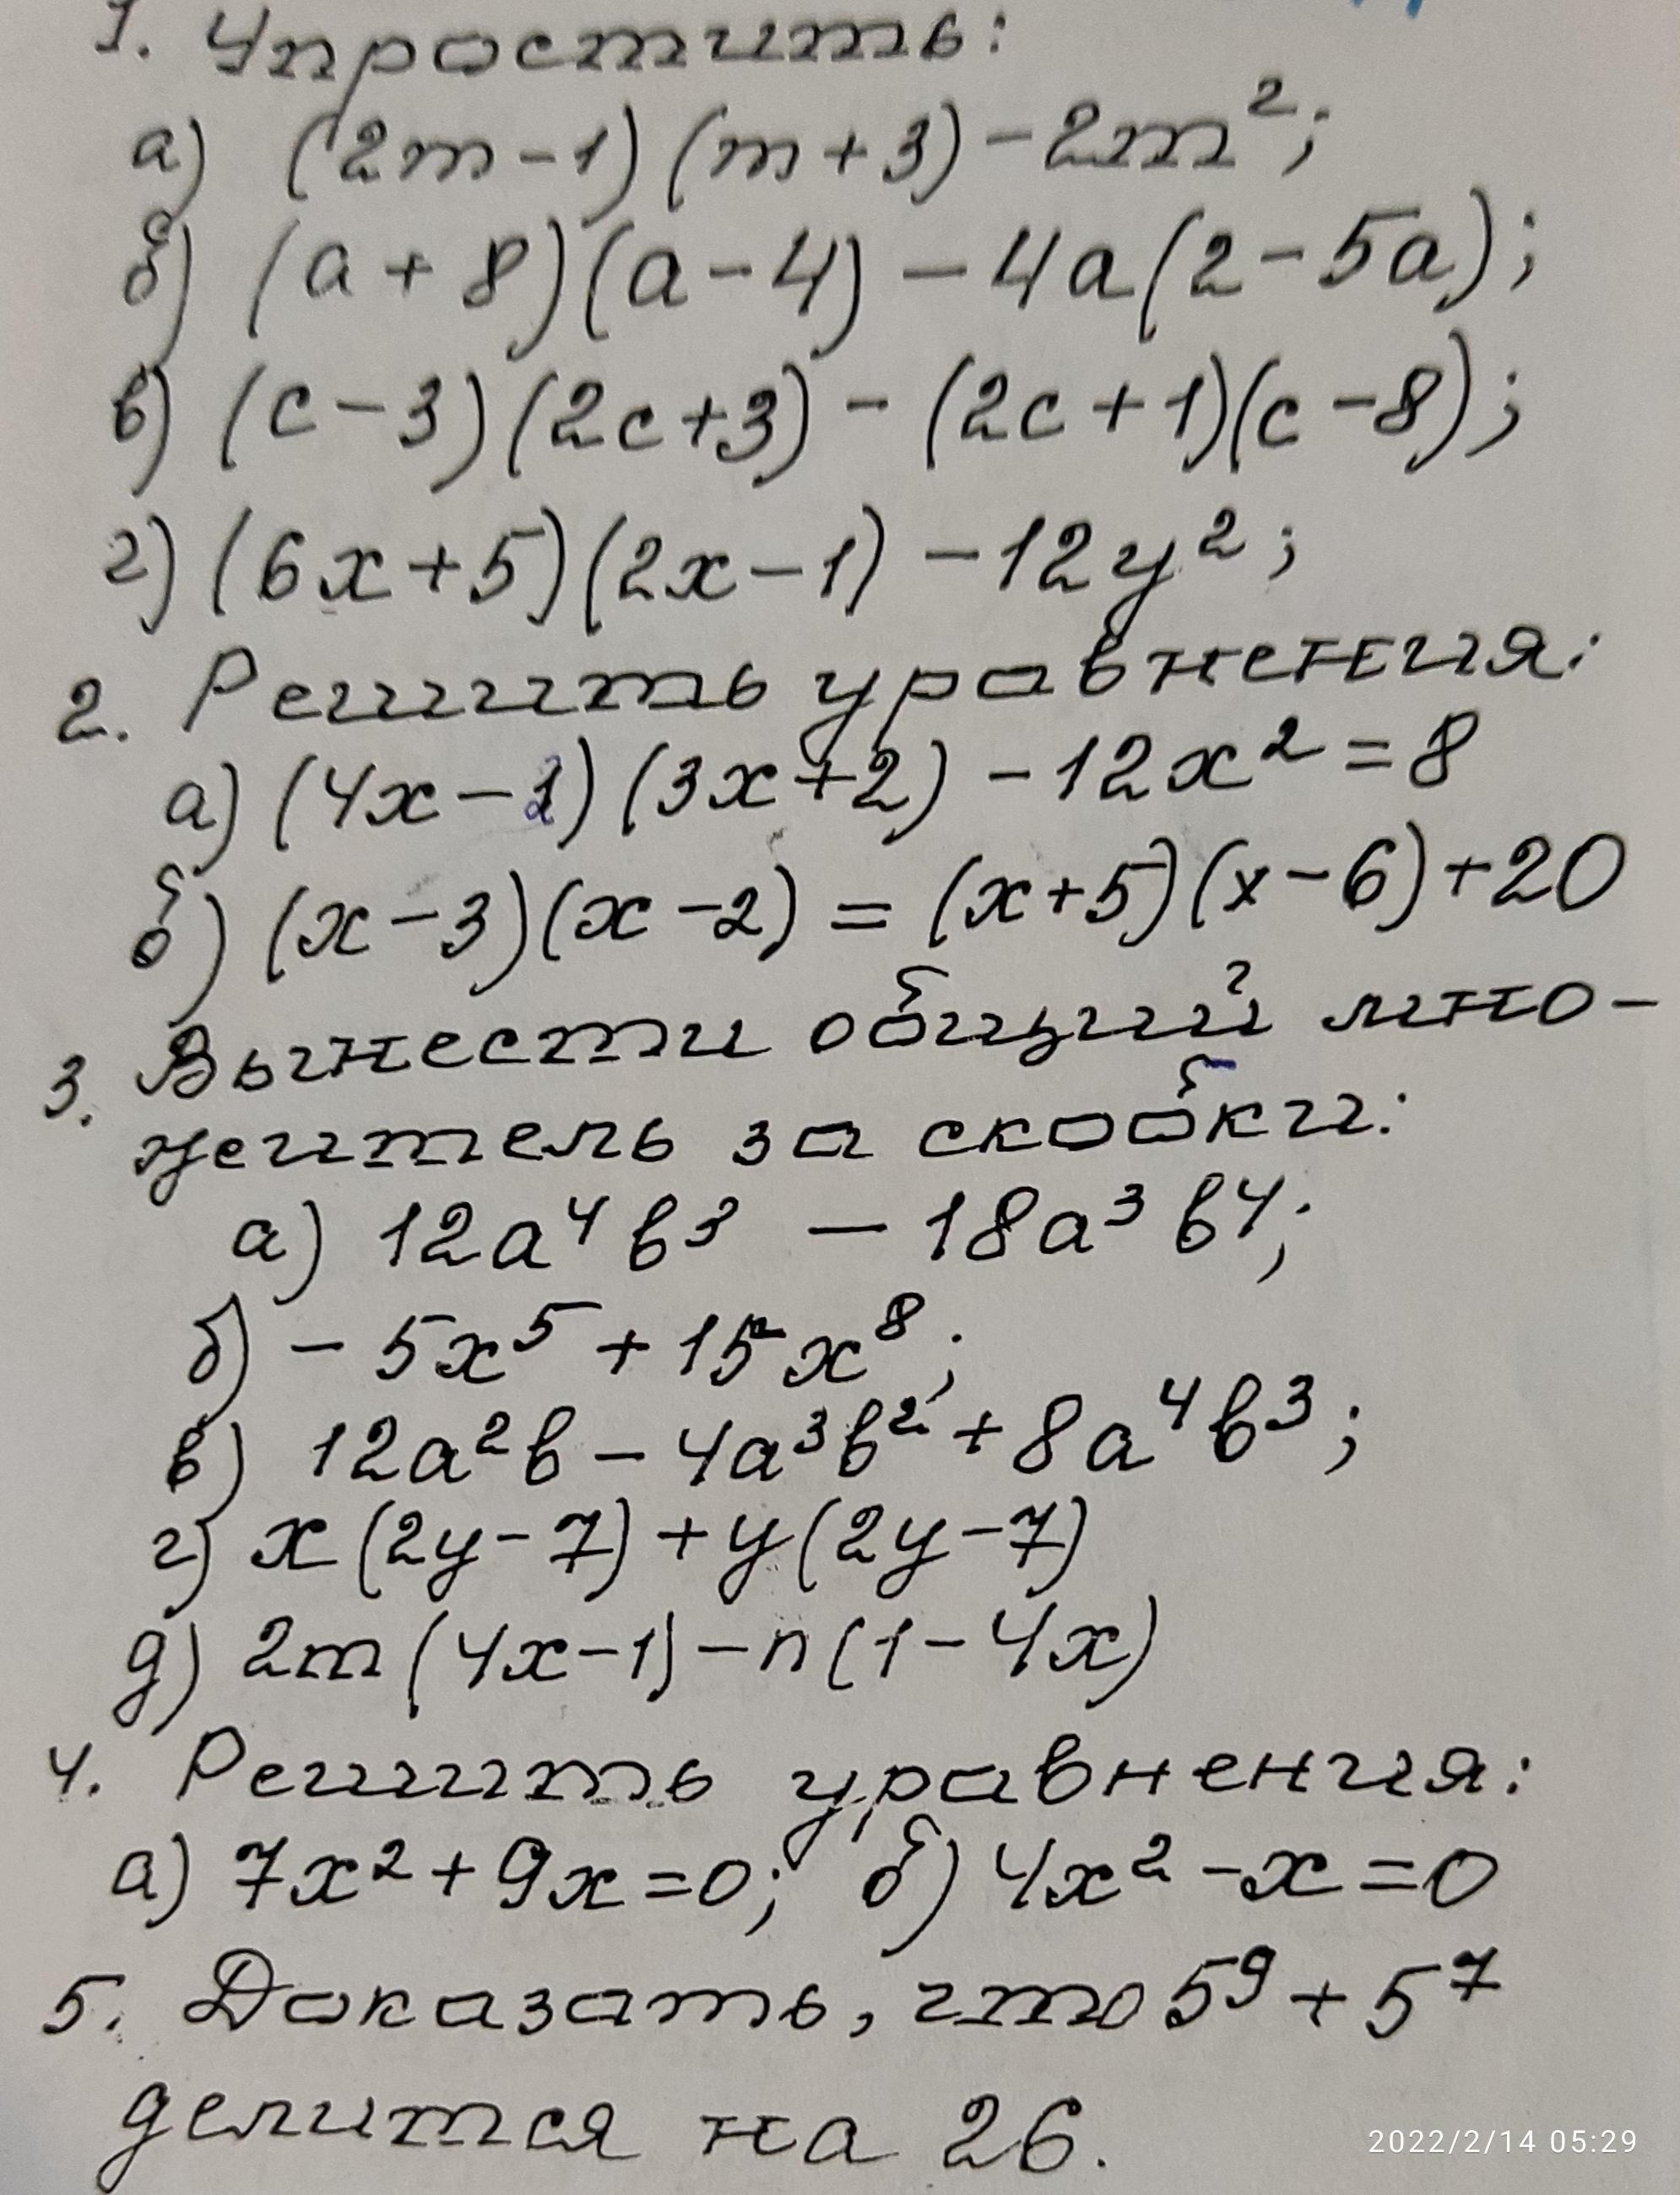 1. Упростить:
а) (2m-1)(m+3)-2m²;
б) (a+8)(a-4)-4a(2-5a);
в) (c-3)(2c+3)-(2c+1)(c-8);
г) (6x+5)(2x-1)-12y²;
2. Решить уравнения:
а) (4x-1)(3x+2)-12x²=8
б) (x-3)(x-2)=(x+5)(x-6)+20
3. Вынести общий мно-
житель за скобки:
а) 12a⁴b³ - 18a³b⁴;
б) -5x⁵+15x⁸;
в) 12a²b-4a³b²+8a⁴b³;
г) x(2y-7)+y(2y-7)
д) 2m(4x-1)-n(1-4x)
4. Решить уравнения:
а) 7x²+9x=0; б) 4x²-x=0
5. Доказать, что 5⁹+5⁷
делится на 26.
2022/2/14 05:29